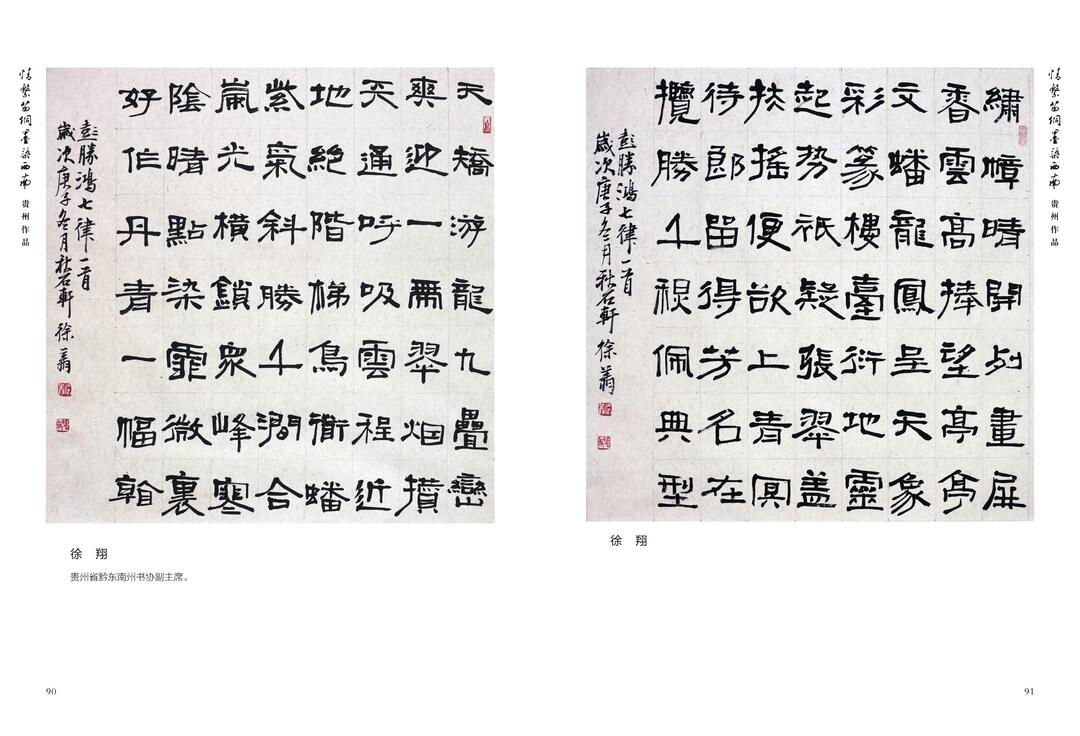 情繫苗侗墨染西南 贵州作品
夭矯游龍九疊巒
爽迎一雨翠烟攢
天通呼吸雲程近
地絶階梯鳥衜蟠
紫氣斜勝千澗合
嵐光橫鎖衆峰寒
陰晴點染霏微裏
好作丹青一幅翰
彭勝鴻七律一首
歲次庚子冬月秋石軒徐翔
徐 翔
贵州省黔东南州书协副主席。
90
情繫苗侗墨染西南 贵州作品
繡幛晴開列畫屏
香雲高捧望亭亭
文蟠龍鳳呈天象
彩篆樓臺衍地靈
起勢祇疑張翠蓋
扶搖便欲上青冥
待郎留得芳名在
攬勝千禩佩典型
彭勝鴻七律一首
歲次庚子冬月秋石軒徐翔
徐 翔
91